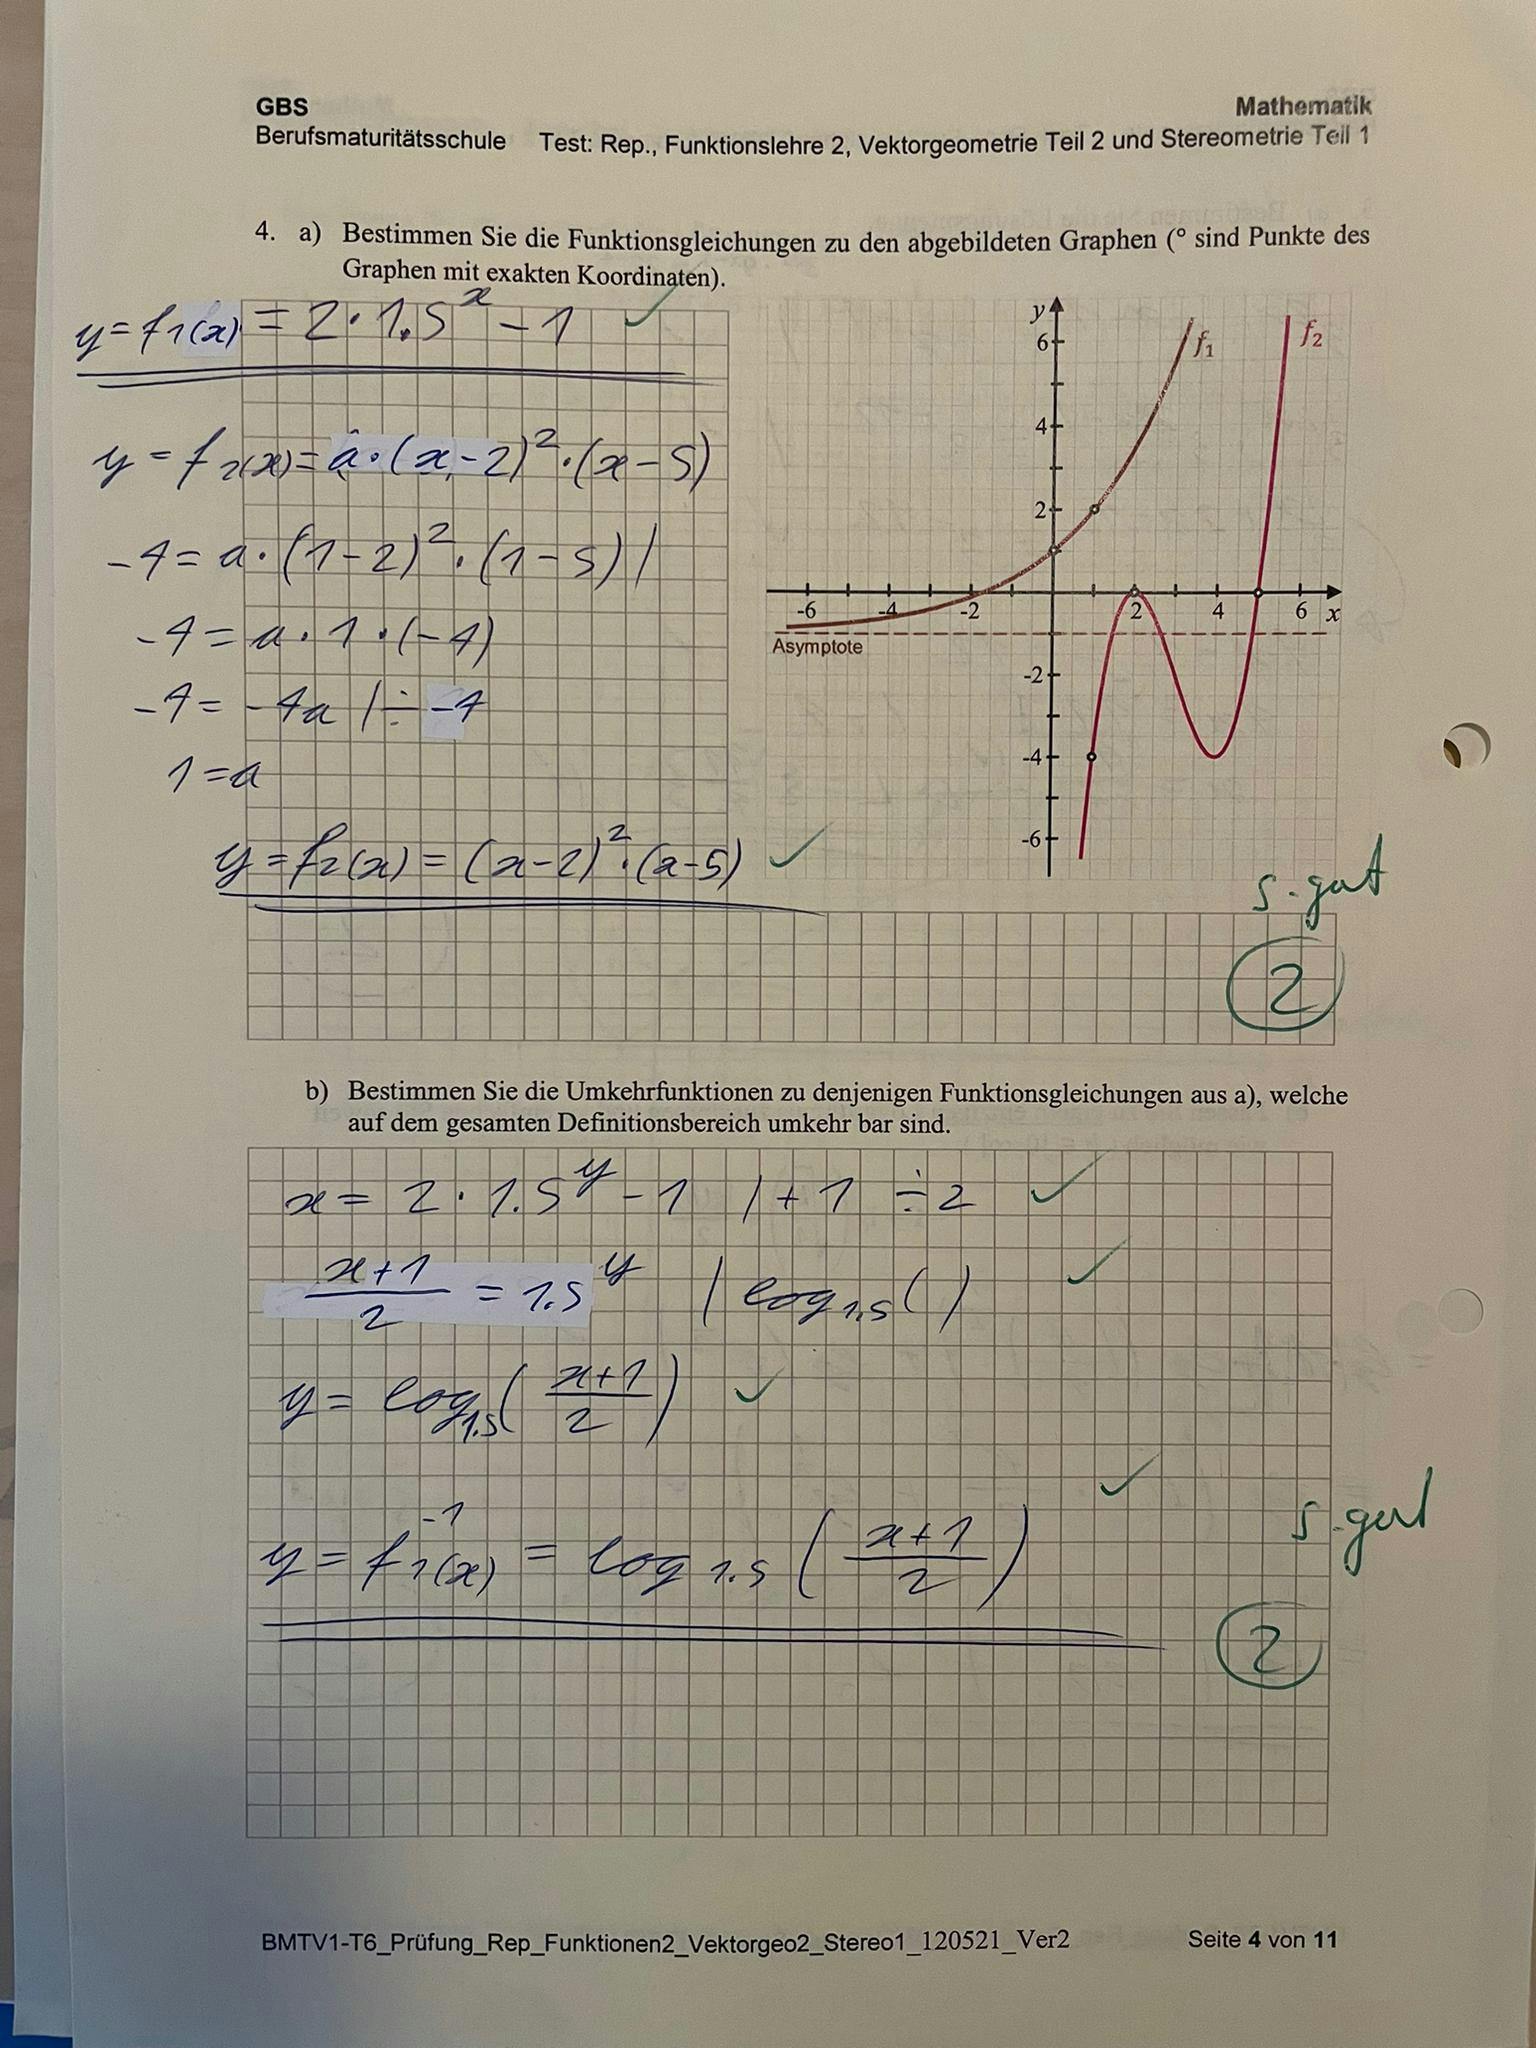 GBS
Mathematik
Berufsmaturitätsschule Test: Rep., Funktionslehre 2, Vektorgeometrie Teil 2 und Stereometrie Teil 1
4. a) Bestimmen Sie die Funktionsgleichungen zu den abgebildeten Graphen (° sind Punkte des
Graphen mit exakten Koordinaten).
y = f₁(x) = 2 · 1.5^x − 1 ✓
y = f₂(x) = a · (x−2)² · (x−5)
−4 = a · (1−2)² · (1−5) |
−4 = a · 1 · (−4)
−4 = −4a | ÷ −4
1 = a
y = f₂(x) = (x−2)² · (x−5) ✓
y
6
f₁
f₂
4
2
-6 -4 -2 2 4 6 x
Asymptote
-2
-4
-6
s. gut
2
b) Bestimmen Sie die Umkehrfunktionen zu denjenigen Funktionsgleichungen aus a), welche
auf dem gesamten Definitionsbereich umkehr bar sind.
x = 2 · 1.5^y − 1 | + 1 ÷ 2 ✓
(x+1)/2 = 1.5^y | log₁.₅ ( ) ✓
y = log₁.₅ ((x+1)/2) ✓
y = f₁⁻¹(x) = log 1.5 ((x+1)/2) ✓
s. gut
2
BMTV1-T6_Prüfung_Rep_Funktionen2_Vektorgeo2_Stereo1_120521_Ver2 Seite 4 von 11